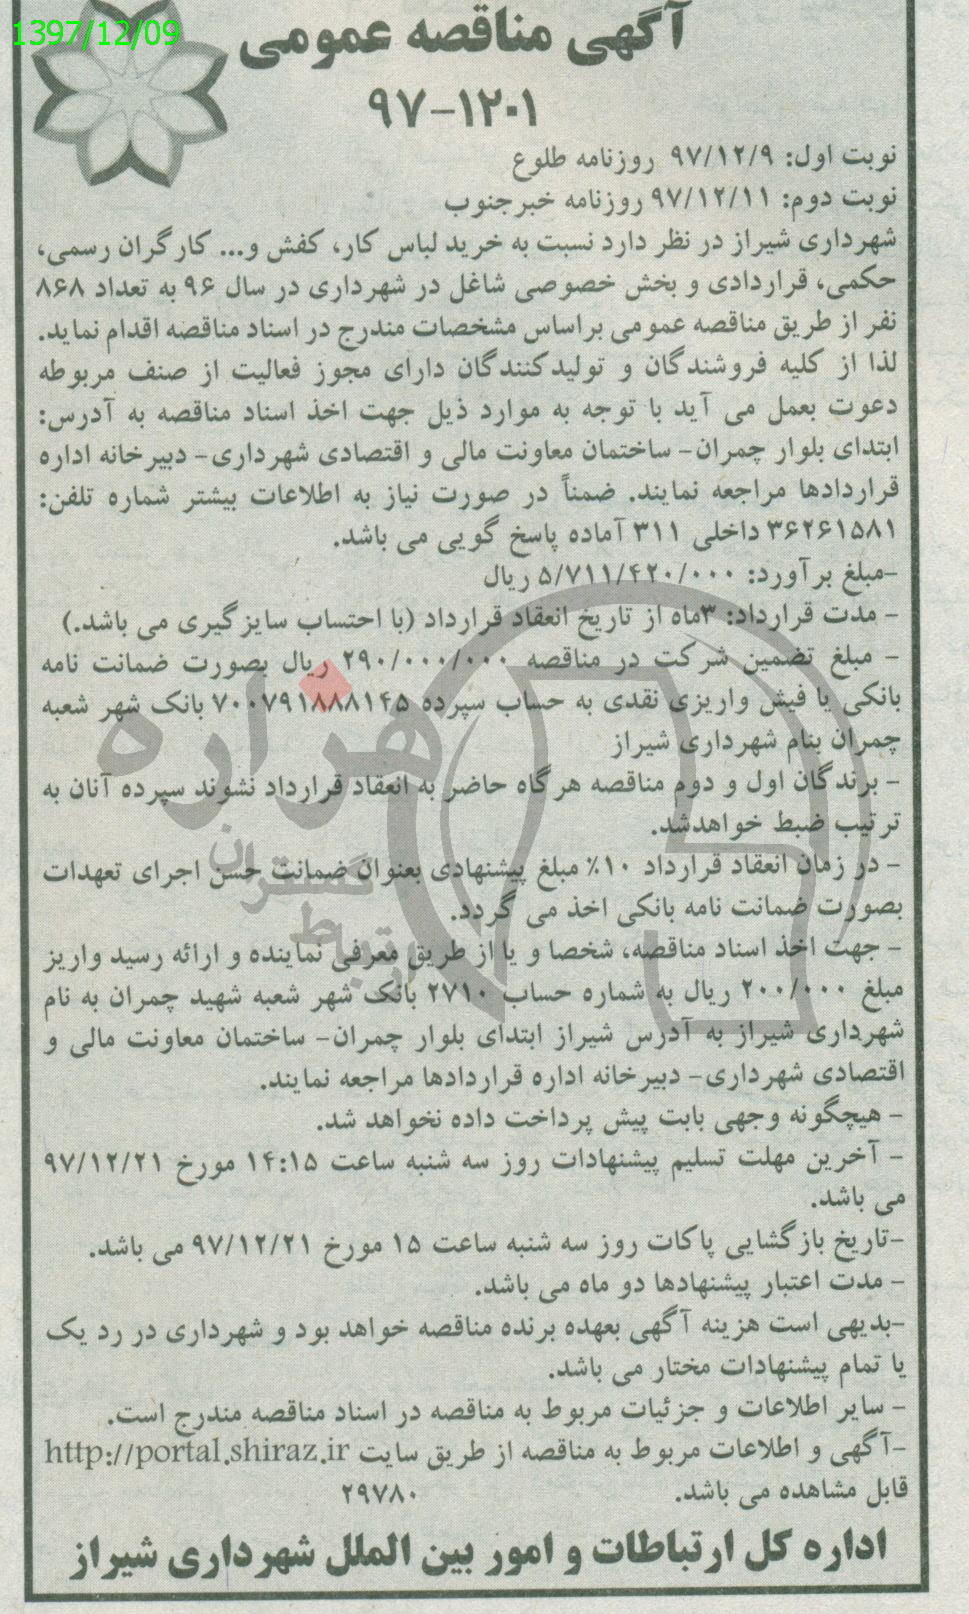 1397/12/09
آگهی مناقصه عمومی
۹۷-۱۲۰۱
نوبت اول: ۹۷/۱۲/۹ روزنامه طلوع
نوبت دوم: ۹۷/۱۲/۱۱ روزنامه خبرجنوب
شهرداری شیراز در نظر دارد نسبت به خرید لباس کار، کفش و... کارگران رسمی،
حکمی، قراردادی و بخش خصوصی شاغل در شهرداری در سال ۹۶ به تعداد ۸۶۸
نفر از طریق مناقصه عمومی براساس مشخصات مندرج در اسناد مناقصه اقدام نماید.
لذا از کلیه فروشندگان و تولیدکنندگان دارای مجوز فعالیت از صنف مربوطه
دعوت بعمل می آید با توجه به موارد ذیل جهت اخذ اسناد مناقصه به آدرس:
ابتدای بلوار چمران- ساختمان معاونت مالی و اقتصادی شهرداری- دبیرخانه اداره
قراردادها مراجعه نمایند. ضمناً در صورت نیاز به اطلاعات بیشتر شماره تلفن:
۳۶۲۶۱۵۸۱ داخلی ۳۱۱ آماده پاسخ گویی می باشد.
-مبلغ برآورد: ۵/۷۱۱/۴۲۰/۰۰۰ ریال
- مدت قرارداد: ۳ماه از تاریخ انعقاد قرارداد (با احتساب سایزگیری می باشد.)
- مبلغ تضمین شرکت در مناقصه ۲۹۰/۰۰۰/۰۰۰ ریال بصورت ضمانت نامه
بانکی یا فیش واریزی نقدی به حساب سپرده ۷۰۰۷۹۱۸۸۸۱۴۵ بانک شهر شعبه
چمران بنام شهرداری شیراز
- برندگان اول و دوم مناقصه هرگاه حاضر به انعقاد قرارداد نشوند سپرده آنان به
ترتیب ضبط خواهدشد.
- در زمان انعقاد قرارداد ۱۰٪ مبلغ پیشنهادی بعنوان ضمانت حسن اجرای تعهدات
بصورت ضمانت نامه بانکی اخذ می گردد.
- جهت اخذ اسناد مناقصه، شخصا و یا از طریق معرفی نماینده و ارائه رسید واریز
مبلغ ۲۰۰/۰۰۰ ریال به شماره حساب ۲۷۱۰ بانک شهر شعبه شهید چمران به نام
شهرداری شیراز به آدرس شیراز ابتدای بلوار چمران- ساختمان معاونت مالی و
اقتصادی شهرداری- دبیرخانه اداره قراردادها مراجعه نمایند.
- هیچگونه وجهی بابت پیش پرداخت داده نخواهد شد.
- آخرین مهلت تسلیم پیشنهادات روز سه شنبه ساعت ۱۴:۱۵ مورخ ۹۷/۱۲/۲۱
می باشد.
-تاریخ بازگشایی پاکات روز سه شنبه ساعت ۱۵ مورخ ۹۷/۱۲/۲۱ می باشد.
- مدت اعتبار پیشنهادها دو ماه می باشد.
-بدیهی است هزینه آگهی بعهده برنده مناقصه خواهد بود و شهرداری در رد یک
یا تمام پیشنهادات مختار می باشد.
- سایر اطلاعات و جزئیات مربوط به مناقصه در اسناد مناقصه مندرج است.
-آگهی و اطلاعات مربوط به مناقصه از طریق سایت http://portal.shiraz.ir
قابل مشاهده می باشد. ۲۹۷۸۰
اداره کل ارتباطات و امور بین الملل شهرداری شیراز
هزاره
گستران
ارتباط